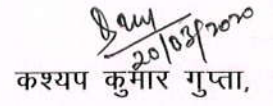 20/03/2020
कश्यप कुमार गुप्ता,